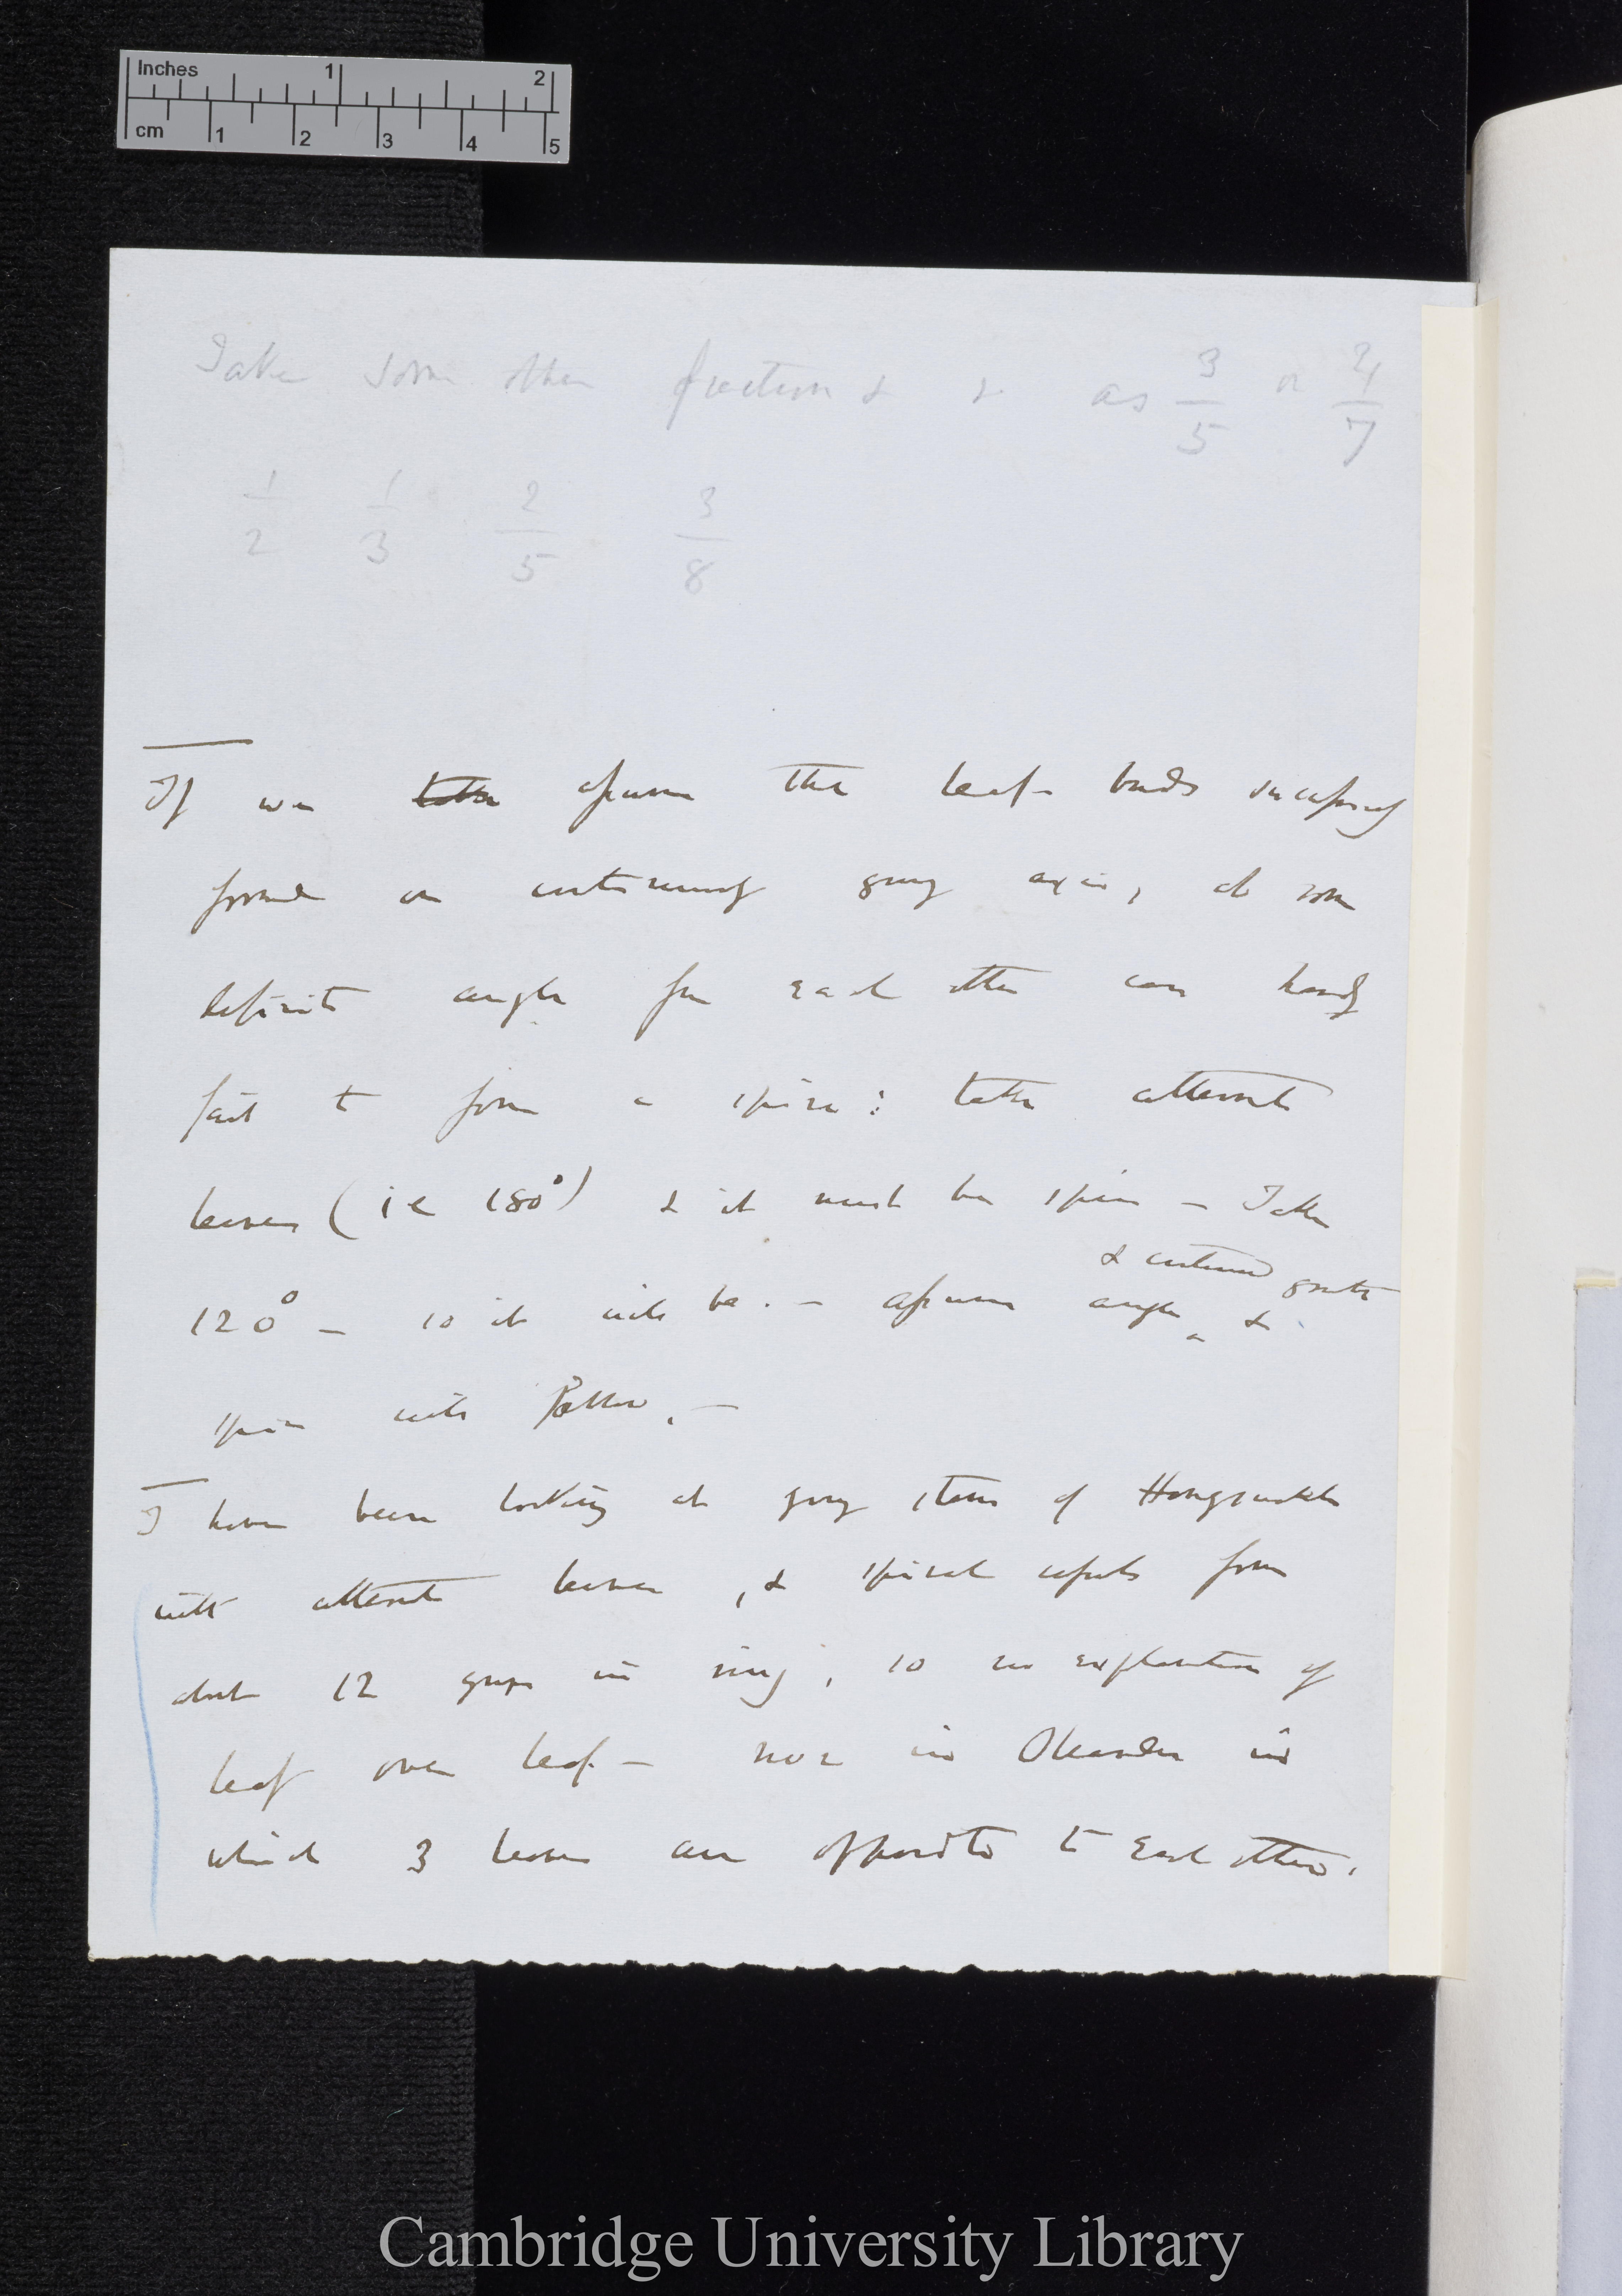 Inches 1 2
cm 1 2 3 4 5
Take some other fractions & as 3/5 or 4/7
1/2 1/3 2/5 3/8
If we take assume the leaf-buds successively
formed on continuously growing axis, at some
definite angle from each other can hardly
fail to form a spire: take alternate
leaves (ie 180°) & it must be spire — Take
& continued growth
120° — so it will be. — assume angle &
spire will follow. —
I have been looking at young stems of Honeysuckle
with alternate leaves, & spiral vessels form
about 12 groups in ring; so no explanation of
leaf over leaf. — nor in Oleander in
which 3 leaves are opposite to each other.
Cambridge University Library